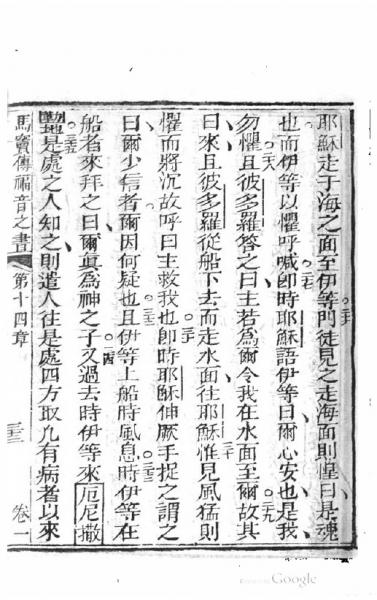 耶穌走于海之面至伊等門徒見之走海面則惶曰是魂
也而伊等以懼呼喊卽時耶穌語伊等曰爾心安也是我
勿懼且彼多羅答之曰主若爲爾令我在水面至爾故其
曰來且彼多羅從船下去而走水面往耶穌惟見風猛則
懼而將沉故呼曰主救我也卽時耶穌伸厥手捉之謂之
曰爾少信者爾因何疑也且伊等上船時風息時伊等在
船者來拜之曰爾眞爲神之子又過去時伊等來厄尼撒
是處之人知之則遣人往是處四方取凡有病者以來
馬竇傳福音之書 第十四章 卷一
Google